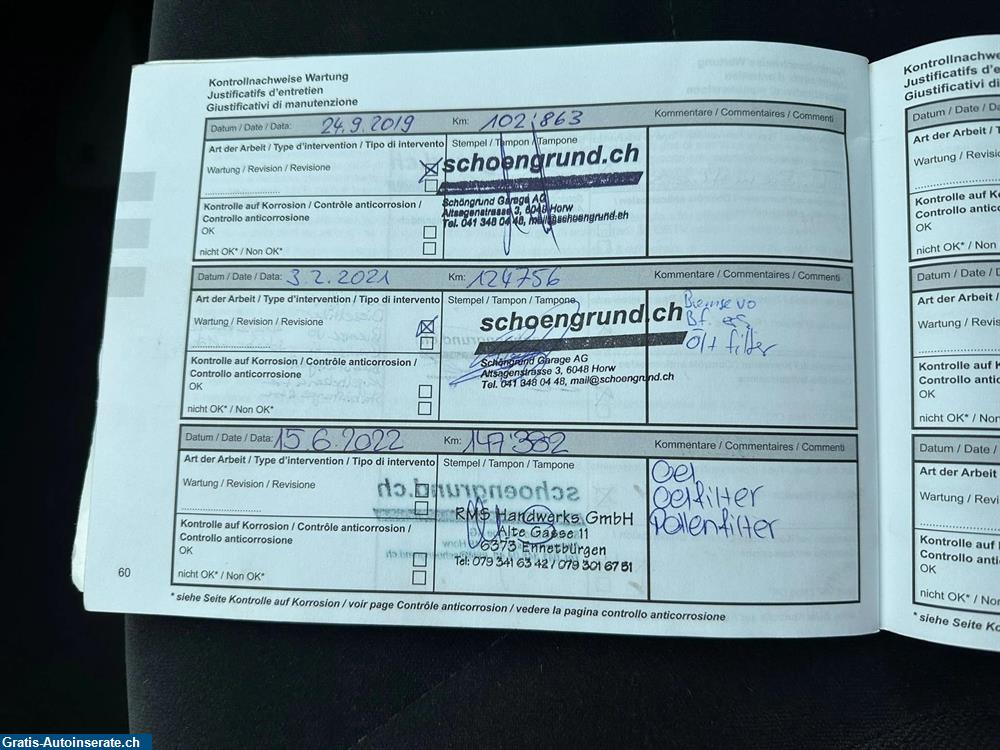 Kontrollnachweise Wartung
Justificatifs d'entretien
Giustificativi di manutenzione
Datum / Date / Data: 24.9.2019 Km: 102'863 Kommentare / Commentaires / Commenti
Art der Arbeit / Type d'intervention / Tipo di intervento Stempel / Tampon / Tampone
Wartung / Revision / Revisione
schoengrund.ch
Schöngrund Garage AG
Altsagenstrasse 3, 6048 Horw
Tel. 041 348 04 48, mail@schoengrund.ch
Kontrolle auf Korrosion / Contrôle anticorrosion /
Controllo anticorrosione
OK
nicht OK* / Non OK*
Datum / Date / Data: 3.2.2021 Km: 124756 Kommentare / Commentaires / Commenti
Art der Arbeit / Type d'intervention / Tipo di intervento Stempel / Tampon / Tampone
Wartung / Revision / Revisione
schoengrund.ch
Schöngrund Garage AG
Altsagenstrasse 3, 6048 Horw
Tel. 041 348 04 48, mail@schoengrund.ch
Bremse vo
Bf.
Öl + filter
Kontrolle auf Korrosion / Contrôle anticorrosion /
Controllo anticorrosione
OK
nicht OK* / Non OK*
Datum / Date / Data: 15.6.2022 Km: 147'382 Kommentare / Commentaires / Commenti
Art der Arbeit / Type d'intervention / Tipo di intervento Stempel / Tampon / Tampone
Wartung / Revision / Revisione
RMS Handwerks GmbH
Alte Gasse 11
6373 Ennetbürgen
Tel: 079 341 63 42 / 079 301 67 51
Oel
Oelfilter
Pollenfilter
Kontrolle auf Korrosion / Contrôle anticorrosion /
Controllo anticorrosione
OK
nicht OK* / Non OK*
* siehe Seite Kontrolle auf Korrosion / voir page Contrôle anticorrosion / vedere la pagina controllo anticorrosione
60
Kontrollnachwe
Justificatifs d'e
Giustificativi di
Datum / Date / Da
Art der Arbeit /
Wartung / Revisi
Kontrolle auf Ko
Controllo antico
OK
nicht OK* / Non
Datum / Date / D
Art der Arbeit /
Wartung / Revis
Kontrolle auf K
Controllo antic
OK
nicht OK* / No
Datum / Date /
Art der Arbeit
Wartung / Rev
Kontrolle auf
Controllo anti
OK
nicht OK* / No
* siehe Seite Ko
Gratis-Autoinserate.ch